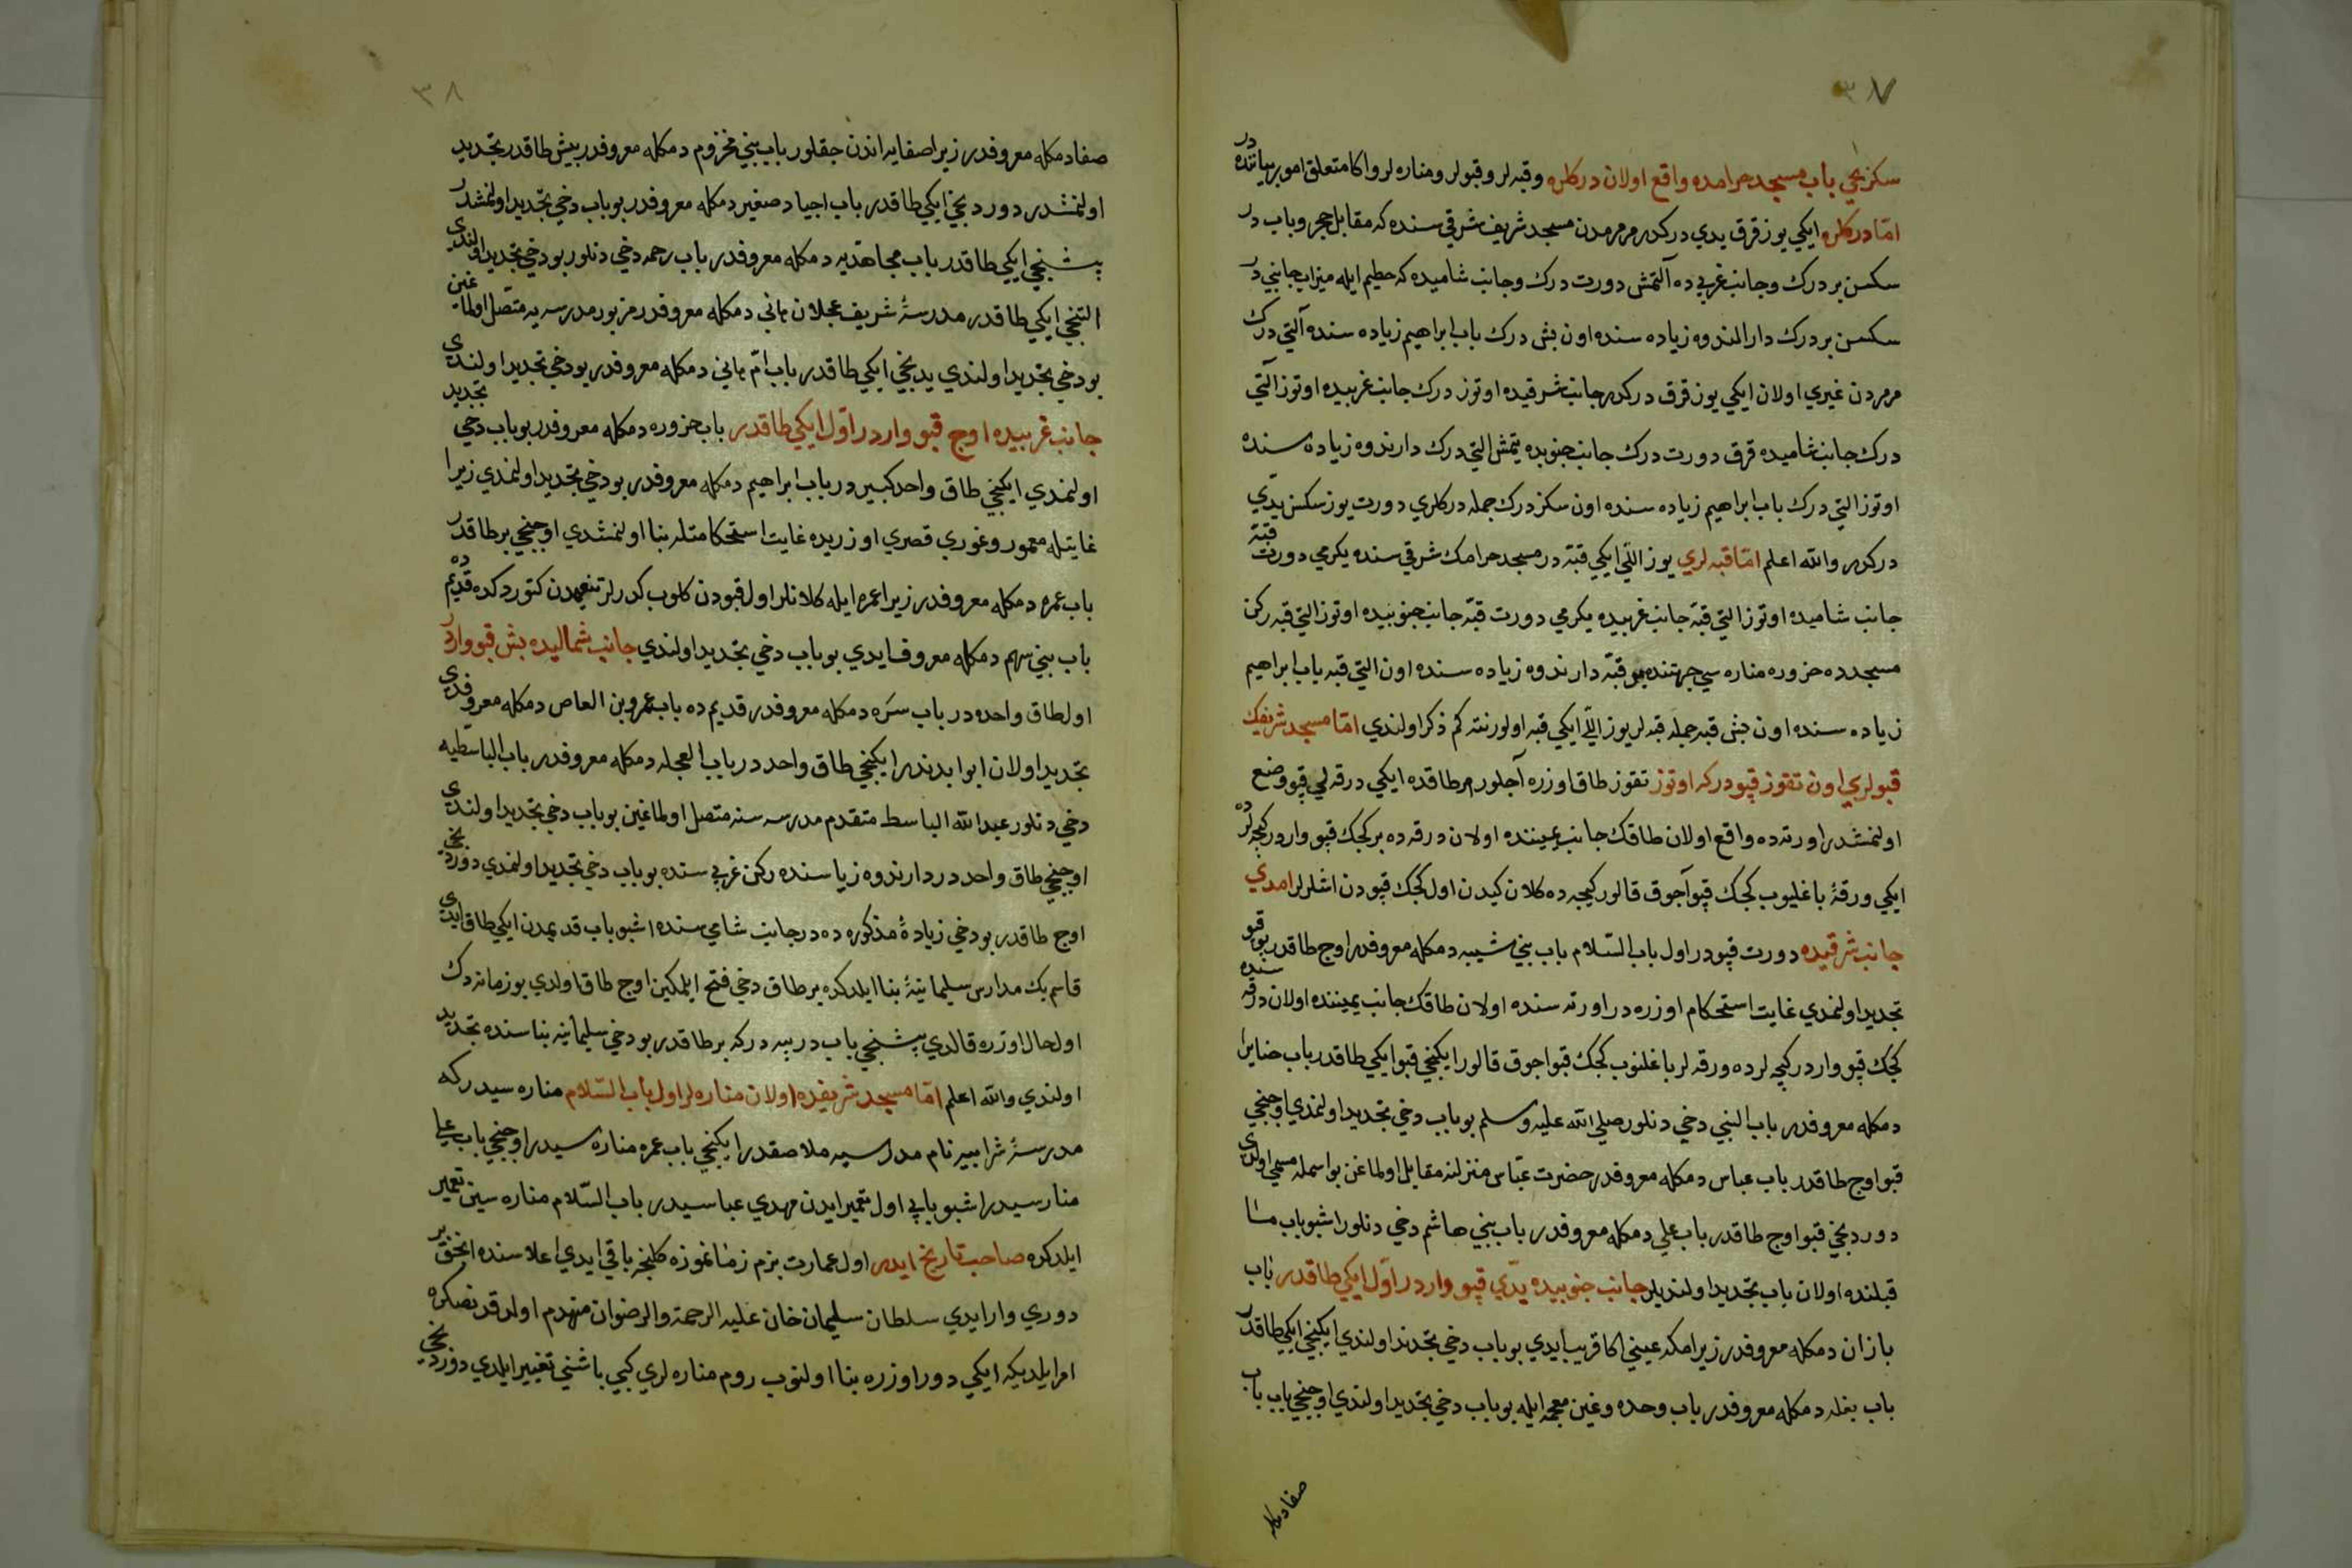 ٣٧
سكزنجي باب مسجد حرامده واقع اولان دركلره وقبه لر وقپولر ومناره لر واكا متعلق امور بياننده در
امّا دركلره ايكي يوز قرق يدي دركدر مرمردن مسجد شريف شرقي سنده كه مقابل حجر وباب در
سكسن بر درك وجانب غربي ده آلتمش دورت درك وجانب شاميده كه حطيم ايله ميزاب جانبي در
سكسن بر درك دار الندوه زياده سنده اون بش درك باب ابراهيم زياده سنده آلتي درك
مرمردن غيري اولان ايكي يوز قرق دركدر جانب شرقيده اوتوز درك جانب غربيده اوتوز آلتي
درك جانب شاميده قرق دورت درك جانب جنوبده يتمش التي درك دار ندوه زياده سنده
اوتوز التي درك باب ابراهيم زياده سنده اون سكز درك جمله دركلري دورت يوز سكسن يدّي
دركدر والله اعلم امّا قبه لري يوز اللّي ايكي قبّه در مسجد حرامك شرقي سنده يكرمي دورت قبّه
جانب شاميده اوتوز التي قبّه جانب غربيده يكرمي دورت قبّه جانب جنوبيده اوتوز التي قبه ركن
مسجدده حزوره مناره سي جهتنده بر قبّه دار ندوه زياده سنده اون التي قبه باب ابراهيم
زياده سنده اون بش قبه جمله قبه لر يوز اللّي ايكي قبه اولور نته كم ذكر اولندي امّا مسجد شريفك
قپولري اون تقوز قپودر كه اوتوز تقوز طاق اوزره آچلور هر طاقده ايكي درقه لي قپو وضع
اولنمشدر اورته ده واقع اولان طاقك جانب يميننده اولان درقه ده بر كجك قپو واردر كيجه لرده
ايكي ورقهٔ باغليوب كجك قپو آجوق قالور كيجه ده كلان كيدن اول كجك قپودن اشلرلر امدي
جانب شرقيده دورت قپودر اول باب السّلام باب بني شيبه دمكله معروفدر اوج طاقدر بو قپو
تجديد اولنمدي غايت استحكام اوزره در اورته سنده اولان طاقك جانب يميننده اولان درقه سنده
كجك قپو واردر كيجه لرده ورقه لر باغلنوب كجك قپو اجوق قالور ايكنجي قپو ايكي طاقدر باب جنايز
دمكله معروفدر باب النبي دخي دنلور صلي الله عليه وسلم بو باب دخي تجديد اولنمدي اوجنجي
قپو اوج طاقدر باب عباس دمكله معروفدر حضرت عبّاس منزلنه مقابل اولماغن بو اسمله مسمي اولدي
دوردنجي قپو اوج طاقدر باب علي دمكله معروفدر باب بني هاشم دخي دنلور اشبو باب
قبلنده اولان باب تجديد اولنديلر جانب جنوبيده يدّي قپو واردر اوّل ايكي طاقدر باب
بازان دمكله معروفدر زيرا مكه عيني اكا قريب ايدي بو باب دخي تجديد اولندي ايكنجي ايكي طاقدر
باب بغله دمكله معروفدر باب وحده وغين معجمه ايله بو باب دخي تجديد اولندي اوجنجي باب باب
صفا دمكله
٣٨
صفا دمكله معروفدر زيرا صفايه اندن جقلور باب بني مخزوم دمكله معروفدر بيش طاقدر تجديد
اولنمشدر دوردنجي ايكي طاقدر باب اجياد صغير دمكله معروفدر بو باب دخي تجديد اولنمشدر
پشنجي ايكي طاقدر باب مجاهديه دمكله معروفدر باب رحمه دخي دنلور بو دخي تجديد اولندي
التنجي ايكي طاقدر مدرسهٔ شريف عجلان باني دمكله معروفدر مزبور مدرسه يه متّصل اولماغن
بو دخي تجديد اولندي يدنجي ايكي طاقدر باب امّ هاني دمكله معروفدر بو دخي تجديد اولندي
جانب غربيده اوج قپو واردر اوّل ايكي طاقدر باب حزوره دمكله معروفدر بو باب دخي تجديد
اولنمدي ايكنجي طاق واحد كبيردر باب ابراهيم دمكله معروفدر بو دخي تجديد اولنمدي زيرا
غايتله معمور وغوري قصري اوزريده غايت استحكامتله بنا اولنمشدي اوجنجي بر طاقدر
باب عمره دمكله معروفدر زيرا عمره ايله كلانلر اول قپودن كلوب كدرلر تنعيمدن كتوردكده قديم ده
باب بني سهم دمكله معروف ايدي بو باب دخي تجديد اولندي جانب شماليده بش قپو واردر
اول طاق واحده در باب سدّه دمكله معروفدر قديم ده باب عمرو بن العاص دمكله معروفدي
تجديد اولان ابوابدندر ايكنجي طاق واحد در باب العجله دمكله معروفدر باب الباسطيه
دخي دنلور عبد الله الباسط متقدم مدرسه سنه متصل اولماغين بو باب دخي تجديد اولندي
اوجنجي طاق واحد در دار ندوه زياسنده ركن غربي سنده بو باب دخي تجديد اولنمدي دوردنجي
اوج طاقدر بو دخي زيادهٔ مذكوره ده در جانب شامي سنده اشبو باب قديمدن ايكي طاق ايدي
قاسم بك مدارس سليمانيهٔ بنا ايلدكده بر طاق دخي فتح ايلمكين اوج طاق اولدي بو زمانه دك
اول حال اوزره قالدي پشنجي باب دريبه در كه بر طاقدر بو دخي سليمانيه بناسنده تجديد
اولندي والله اعلم امّا مسجد شريفده اولان مناره لر اول باب السّلام مناره سيدر كه
مدرسهٔ شرابيه نام مدرسيه ملاصقدر ايكنجي باب عمره مناره سيدر اوجنجي باب علي
منارسيدر اشبو بابي اول تعمير ايدن مهدي عباسيدر باب السّلام مناره سين تعمير
ايلدكده صاحب تاريخ ايدر اول عمارت بزم زمانموزه كلنجه باقي ايدي اعلاسنده انجق بر
دوري وار ايدي سلطان سليمان خان عليه الرحمة والرضوان منهدم اولدقدنصكره
امر ايلديكه ايكي دور اوزره بنا اولنوب روم مناره لري كبي باشني تغيير ايلدي دوردنجي